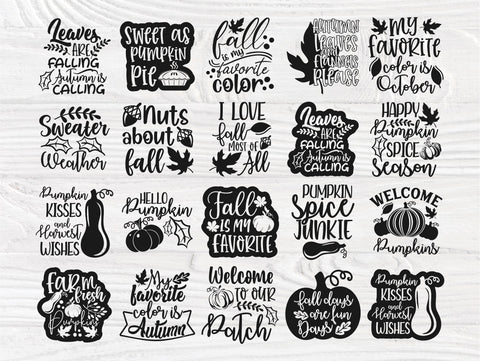 Leaves
ARE
FALLING
Autumn is
CALLING
SWEET AS
PUMPKIN
PIE
fall
is my
favorite
color
AUTUMN
LEAVES
AND
FLANNELS
PLEASE
MY
FAVORITE
color is
October
Sweater
Weather
Nuts
about
fall
I LOVE
fall
MOST OF
All
Leaves
ARE
FALLING
Autumn is
CALLING
HAPPY
Pumpkin
SPICE
Season
Pumpkin
KISSES
and
Harvest
WISHES
HELLO
Pumpkin
Fall
IS MY
FAVORITE
PUMPKIN
Spice
JUNKIE
WELCOME
Pumpkins
FARM
fresh
Pumpkins
My
favorite
color is
Autumn
Welcome
TO OUR
Patch
fall days
are fun
Days
Pumpkin
KISSES
and
Harvest
WISHES